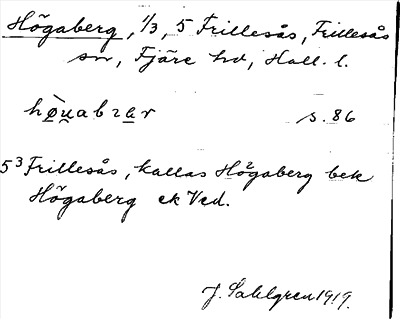 Högaberg, 1/3, 5 Frillesås, Frillesås
sn, Fjäre hd, Hall. l.
hø̀ꭒabꞧar s. 86
5³ Frillesås, kallas Högaberg bek
Högaberg ek Ved.
J. Sahlgren 1919.